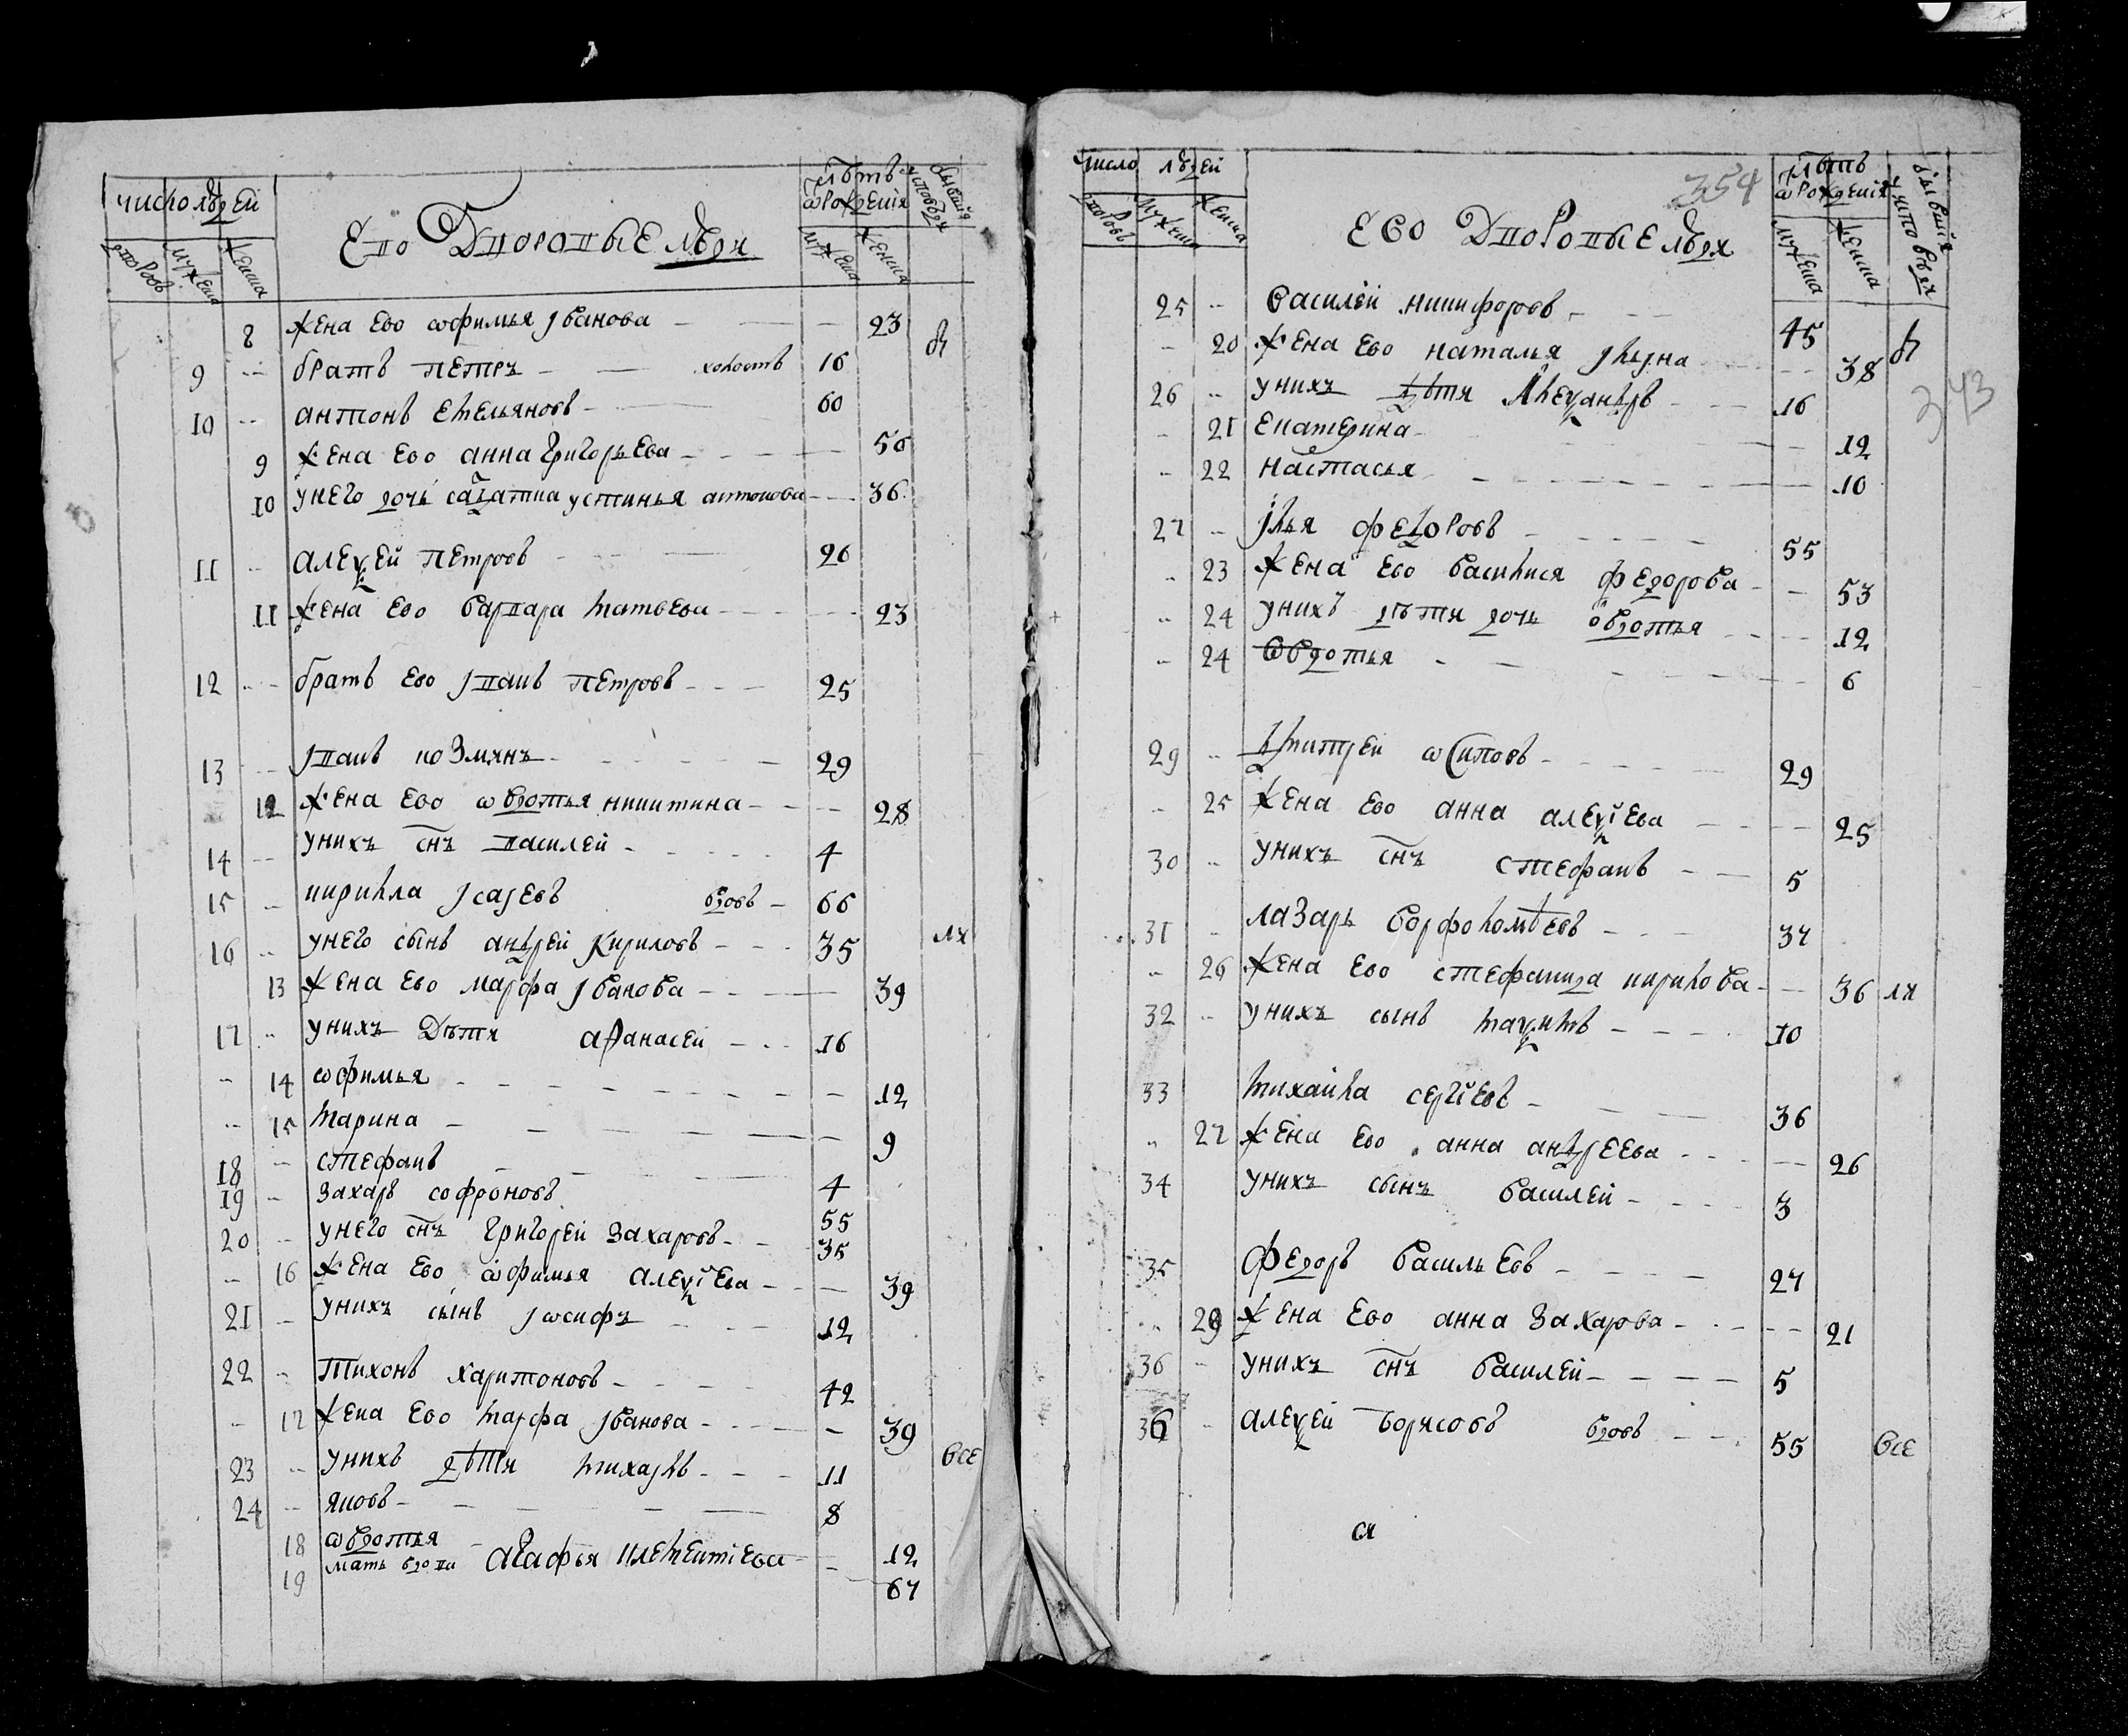 число людей
лѣтъ ѿ рождения
бывшия у исповѣди
дворовъ мужеска женска
Ево Дворовые люди
мужеска женска
8 жена ево офимья иванова 23
9 братъ петръ холостъ 16
10 антонъ емельяновъ 60
9 жена ево анна григорьева 50
10 унего дочь салдатка устинья антонова 36
11 алеѯей петровъ 26
11 жена ево варвара матвева 23
12 братъ ево иванъ петровъ 25
13 иванъ козмянъ 29
12 жена ево ѡвдотья никитина 28
14 унихъ снъ василей 4
15 кирилла исаевъ вдовъ 66
16 унего сынъ андрей кириловъ 35 ля
13 жена ево марфа иванова 39
17 унихъ дѣтя афанасей 16
14 ѡфимья 12
15 марина 9
18 стефанъ 4
19 захаръ софроновъ 55
20 унего снъ григорей захаровъ 35
16 жена ево ѡфимья алеѯѣева 39
21 унихъ сынъ иѡсифъ 12
22 тихонъ харитоновъ 42
17 жена ево марфа иванова 39
23 унихъ дѣтя михаилъ 11 все
24 яковъ 8
18 ѡвдотья 12
19 мать вдова агафья клементиева 67
число людей
354
лѣтъ ѿ рождения
бывшия у исповѣди
дворовъ мужеска женска
Ево Дворовые людя
мужеска женска
25 василей никифоровъ 45
20 жена ево наталья ильина 38
343
26 унихъ дѣтя алеѯандръ 16
21 екатерина 12
22 настасья 10
27 илья федоровъ 55
23 жена ево василися федорова 53
24 унихъ дѣтя дочь овдотья 12
24 ѡвдотья 6
29 дмитрей ѡсиповъ 29
25 жена ево анна алеѯѣева 25
30 унихъ снъ стефанъ 5
31 лазарь ворфоломѣевъ 37
26 жена ево стефанида кирилова 36 ля
32 унихъ сынъ маѯимъ 10
33 михайла сергѣевъ 36
27 жена ево анна андреева 26
34 унихъ сынъ василей 3
35 федоръ васильевъ 27
29 жена ево анна захарова 21
36 унихъ снъ василей 5
36 алеѯей борисовъ вдовъ 55 все
ся